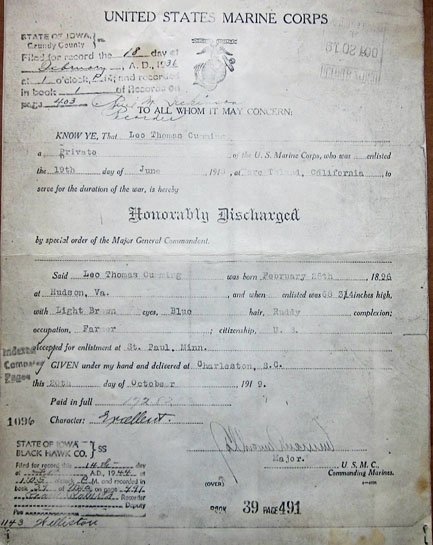 UNITED STATES MARINE CORPS
STATE OF IOWA,
Grundy County
Filed for record the 18 day of
February A. D., 1936
at 1 o'clock, P. M., and recorded
in book 1 of Records on
page 403
Recorder
TO ALL WHOM IT MAY CONCERN:
KNOW YE, That Leo Thomas Cumming
a Private of the U. S. Marine Corps, who was enlisted
the 19th day of June 191 , at Mare Island, California , to
serve for the duration of the war, is hereby
Honorably Discharged
by special order of the Major General Commandant.
Said Leo Thomas Cumming was born February 25th 1896
at Hudson, Va. and when enlisted was 68 3/4 inches high,
with Light Brown eyes, Blue hair, Ruddy complexion;
occupation, Farmer ; citizenship, U. S.
Accepted for enlistment at St. Paul, Minn.
GIVEN under my hand and delivered at Charleston, S.C.
this 20th day of October 1919.
Paid in full
Indexed
Compared
Paged
1096
Character: Excellent.
Major.
U. S. M. C.
Commanding Marines.
STATE OF IOWA
BLACK HAWK CO. } SS
Filed for record this 14th day
of A.D. 1944 at
M. and recorded
in book on page 491
Recorder
Deputy
Fee
(OVER)
BOOK 39 PAGE 491
1143 Williston